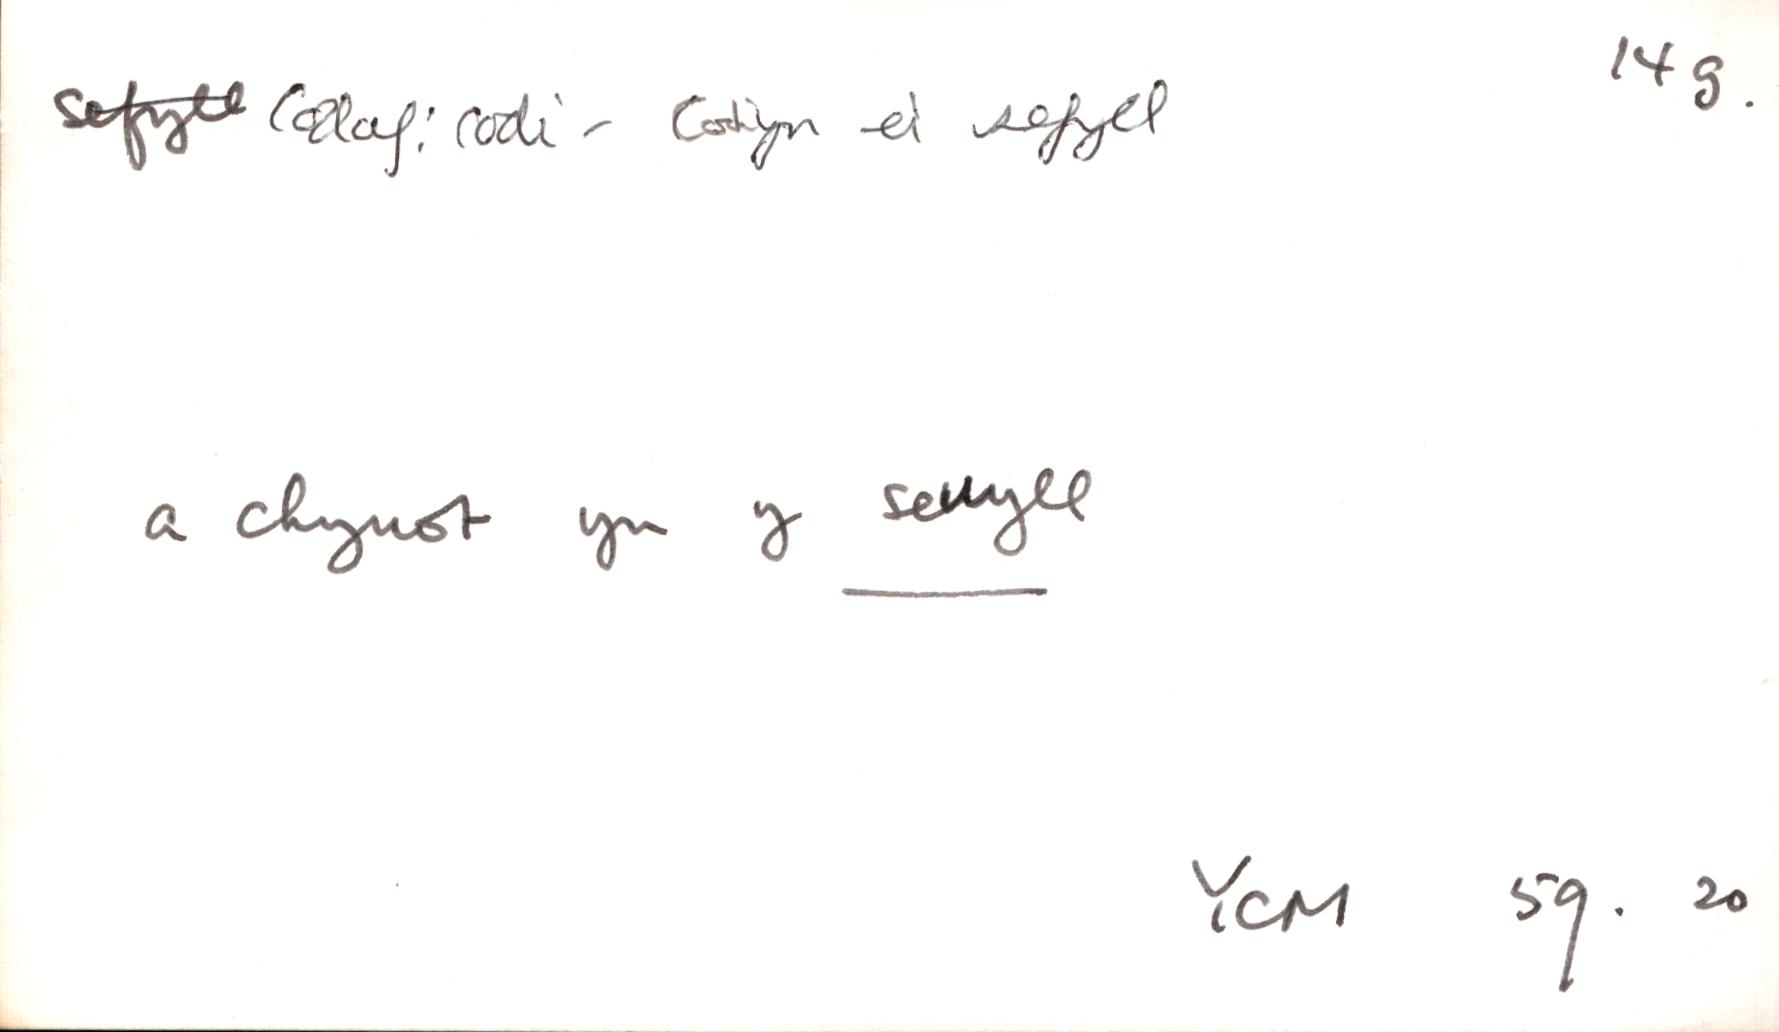 sefyll codaf: codi - Codi yn ei sefyll 14 g.
a chynot yn y seuyll
YCM 59. 20